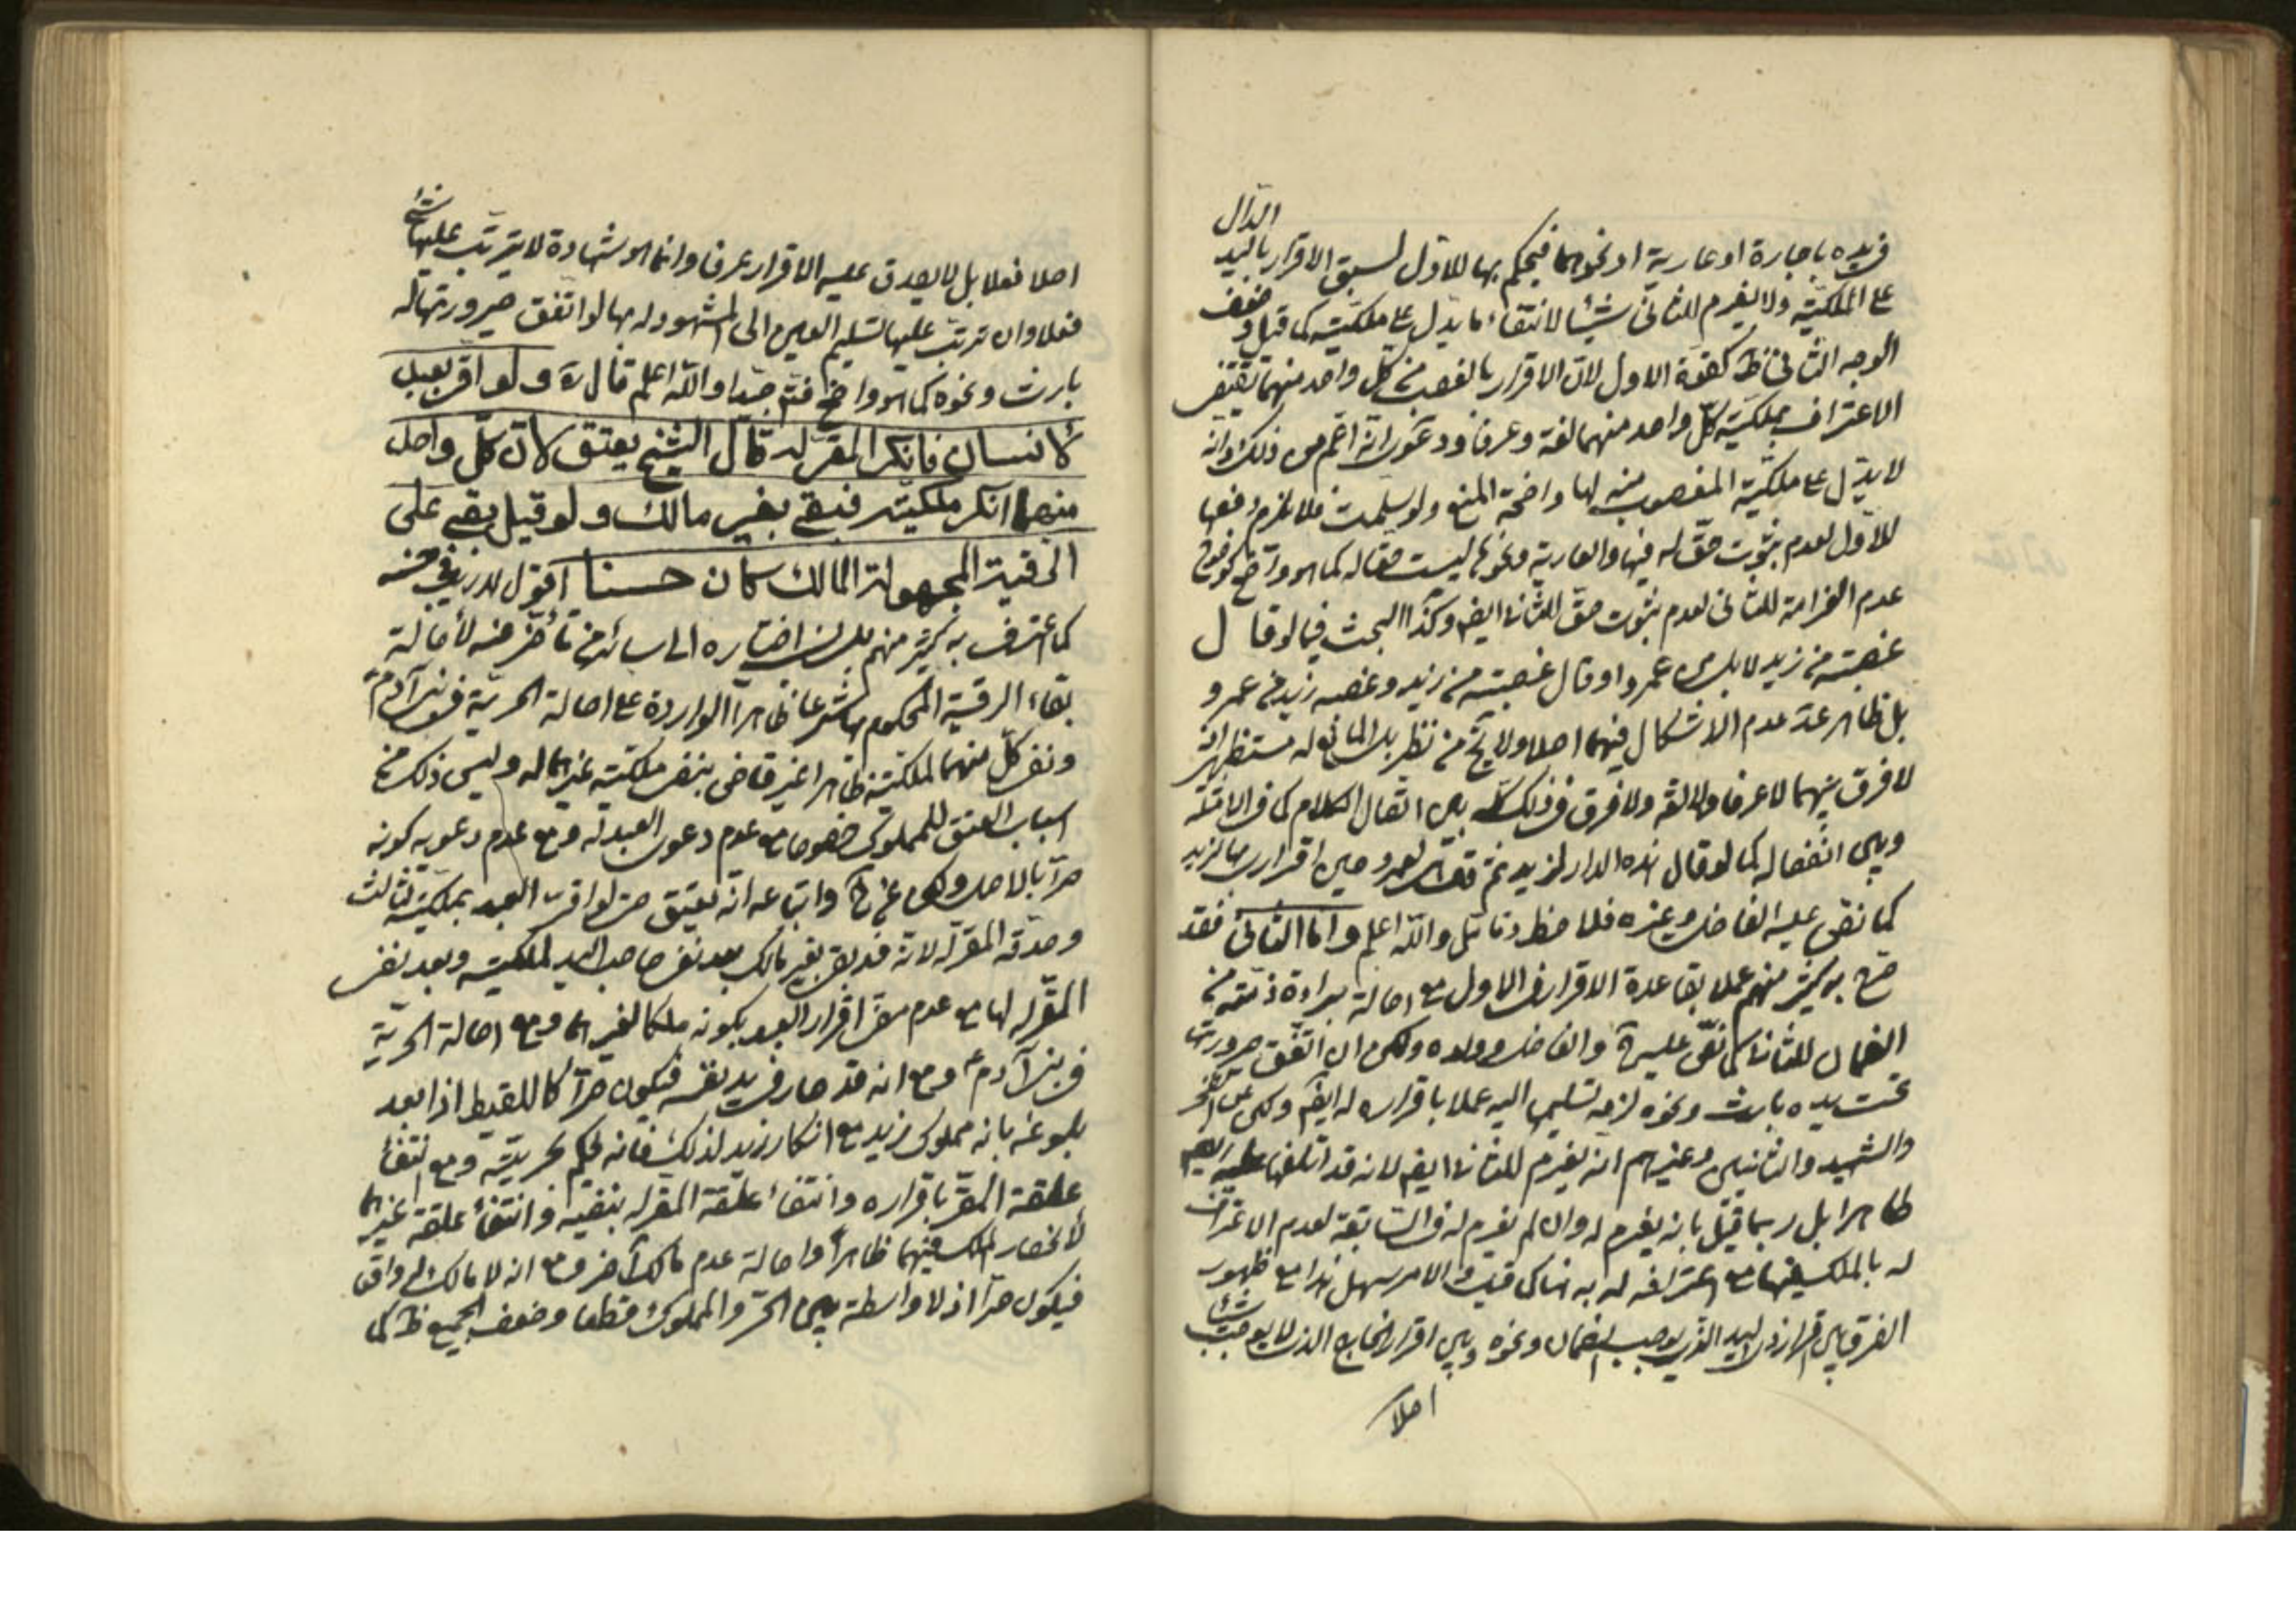 في يده باجارة او عارية او نحوهما فيحكم بها للاول لسبق الاقرار باليد الدال
على الملكيّة ولا يغرم للثاني شيئا لانتفاء ما يدل على ملكيته كما قيل وضعف
الوجه الثاني ظ كقوة الاول لان الاقرار بالغصب من كل واحد منهما يقتضي
الاعتراف بملكية كل واحد منهما لغة وعرفا ودعوى انه اعم من ذلك وانه
لا يدل على ملكية المغصوب منه لها واضحة المنع ولو سلمت فلا يلزم دفعها
للاول لعدم ثبوت حق له فيها والعارية ونحوها ليست حقا له كما هو واضح كوضوح
عدم الغرامة للثاني لعدم ثبوت حق للثاني ايضم وكذا البحث فيما لو قال
غصبته من زيد لا بل من عمرو او قال غصبته من زيد وغصبه زيد من عمرو
بل ظاهر عدم الاشكال فيهما اصلا ولا يخ من نظر بل المانع له مستظهر انه
لا فرق بينهما لا عرفا ولا لغة ولا فرق في ذلك كله بين اتصال الكلام كما في الامثلة
وبين انفصاله كما لو قال هذه الدار لزيد ثم قال لعمرو حين اقراره بها لزيد
كما نص عليه الفاضل وغيره فلاحظ وتامل والله اعلم واما الثاني فقد
صرح به كثير منهم عملا بقاعدة الاقرار في الاول مع اصالة براءة ذمته من
الضمان للثاني كما نص عليه والفاضل وولده ولكن ان اتفق صيرورتها
تحت يده بارث ونحوه لزمه تسليمها اليه عملا باقراره له ايضم وعن الفخر
والشهيد والثانيين وغيرهم انه يغرم للثاني ايضم لانه قد اتلفها عليه
ظاهرا بل ربما قيل بانه يغرم له وان لم يغرم له في السابقة لعدم الاعتراف
له بالملك فيها مع اعترافه له به هنا كما قيل والامر سهل هذا مع ظهور
الفرق بين اقرار ذي اليد الذي يوجب الضمان ونحوه وبين اقرار الخارج الذي لا يوجب شيئا
اصلا
اصلا فعلا بل لا يصدق عليه الاقرار عرفا وانما هو شهادة لا يترتب عليها شيء
فعلا وان ترتب عليها تسليم العين الى المشهود له بها لو اتفق صيرورتها له
بارث ونحوه كما هو واضح فتم جيدا والله اعلم قال ره ولو اقر بعبد
لانسان فانكر المقر له قال الشيخ يعتق لان كل واحد
منهما انكر ملكيته فبقى بغير مالك ولو قيل بقى على
الرقية المجهولة المالك كان حسنا اقول لا ريب في حسنه
كما اعترف به كثير منهم بل اختياره الى سائر من تاخر عنه لاصالة
بقاء الرقية المحكوم بها شرعا ظاهرا الواردة على اصالة الحرية في بني آدم
ونفي كل منهما لملكيته ظاهرا غير قاض بنفي ملكية غيرهما له وليس ذلك من
اسباب العتق للمملوك خصوصا مع عدم دعوى العبد له ومع عدم دعويه كونه
حرا بالاصل ولكن عن واتباعه انه يعتق حتى لو اقر العبد بملكيته لثالث
وصدقه المقر له لانه قد بقي بغير مالك بعد نفي صاحب اليد لملكيته وبعد نفي
المقر له لها مع عدم مضي اقرار العبد بكونه ملكا لغيرهما ومع اصالة الحرية
في بني آدم ومع انه قد صار في يد نفسه فيكون حرا كاللقيط اذا بعد
بلوغه بانه مملوك زيد مع انكار زيد لذلك فانه يحكم بحريته ومع انتفاء
علقة المقر باقراره وانتفاء علقة المقر له بنفيه وانتفاء علقة غيرهما
لانحصار الملك فيهما ظاهرا واصالة عدم مالك آخر ومع انه لا مالك له واقعا
فيكون حرا اذ لا واسطة بين الحر والمملوك قطعا وضعف الجميع ظ كما